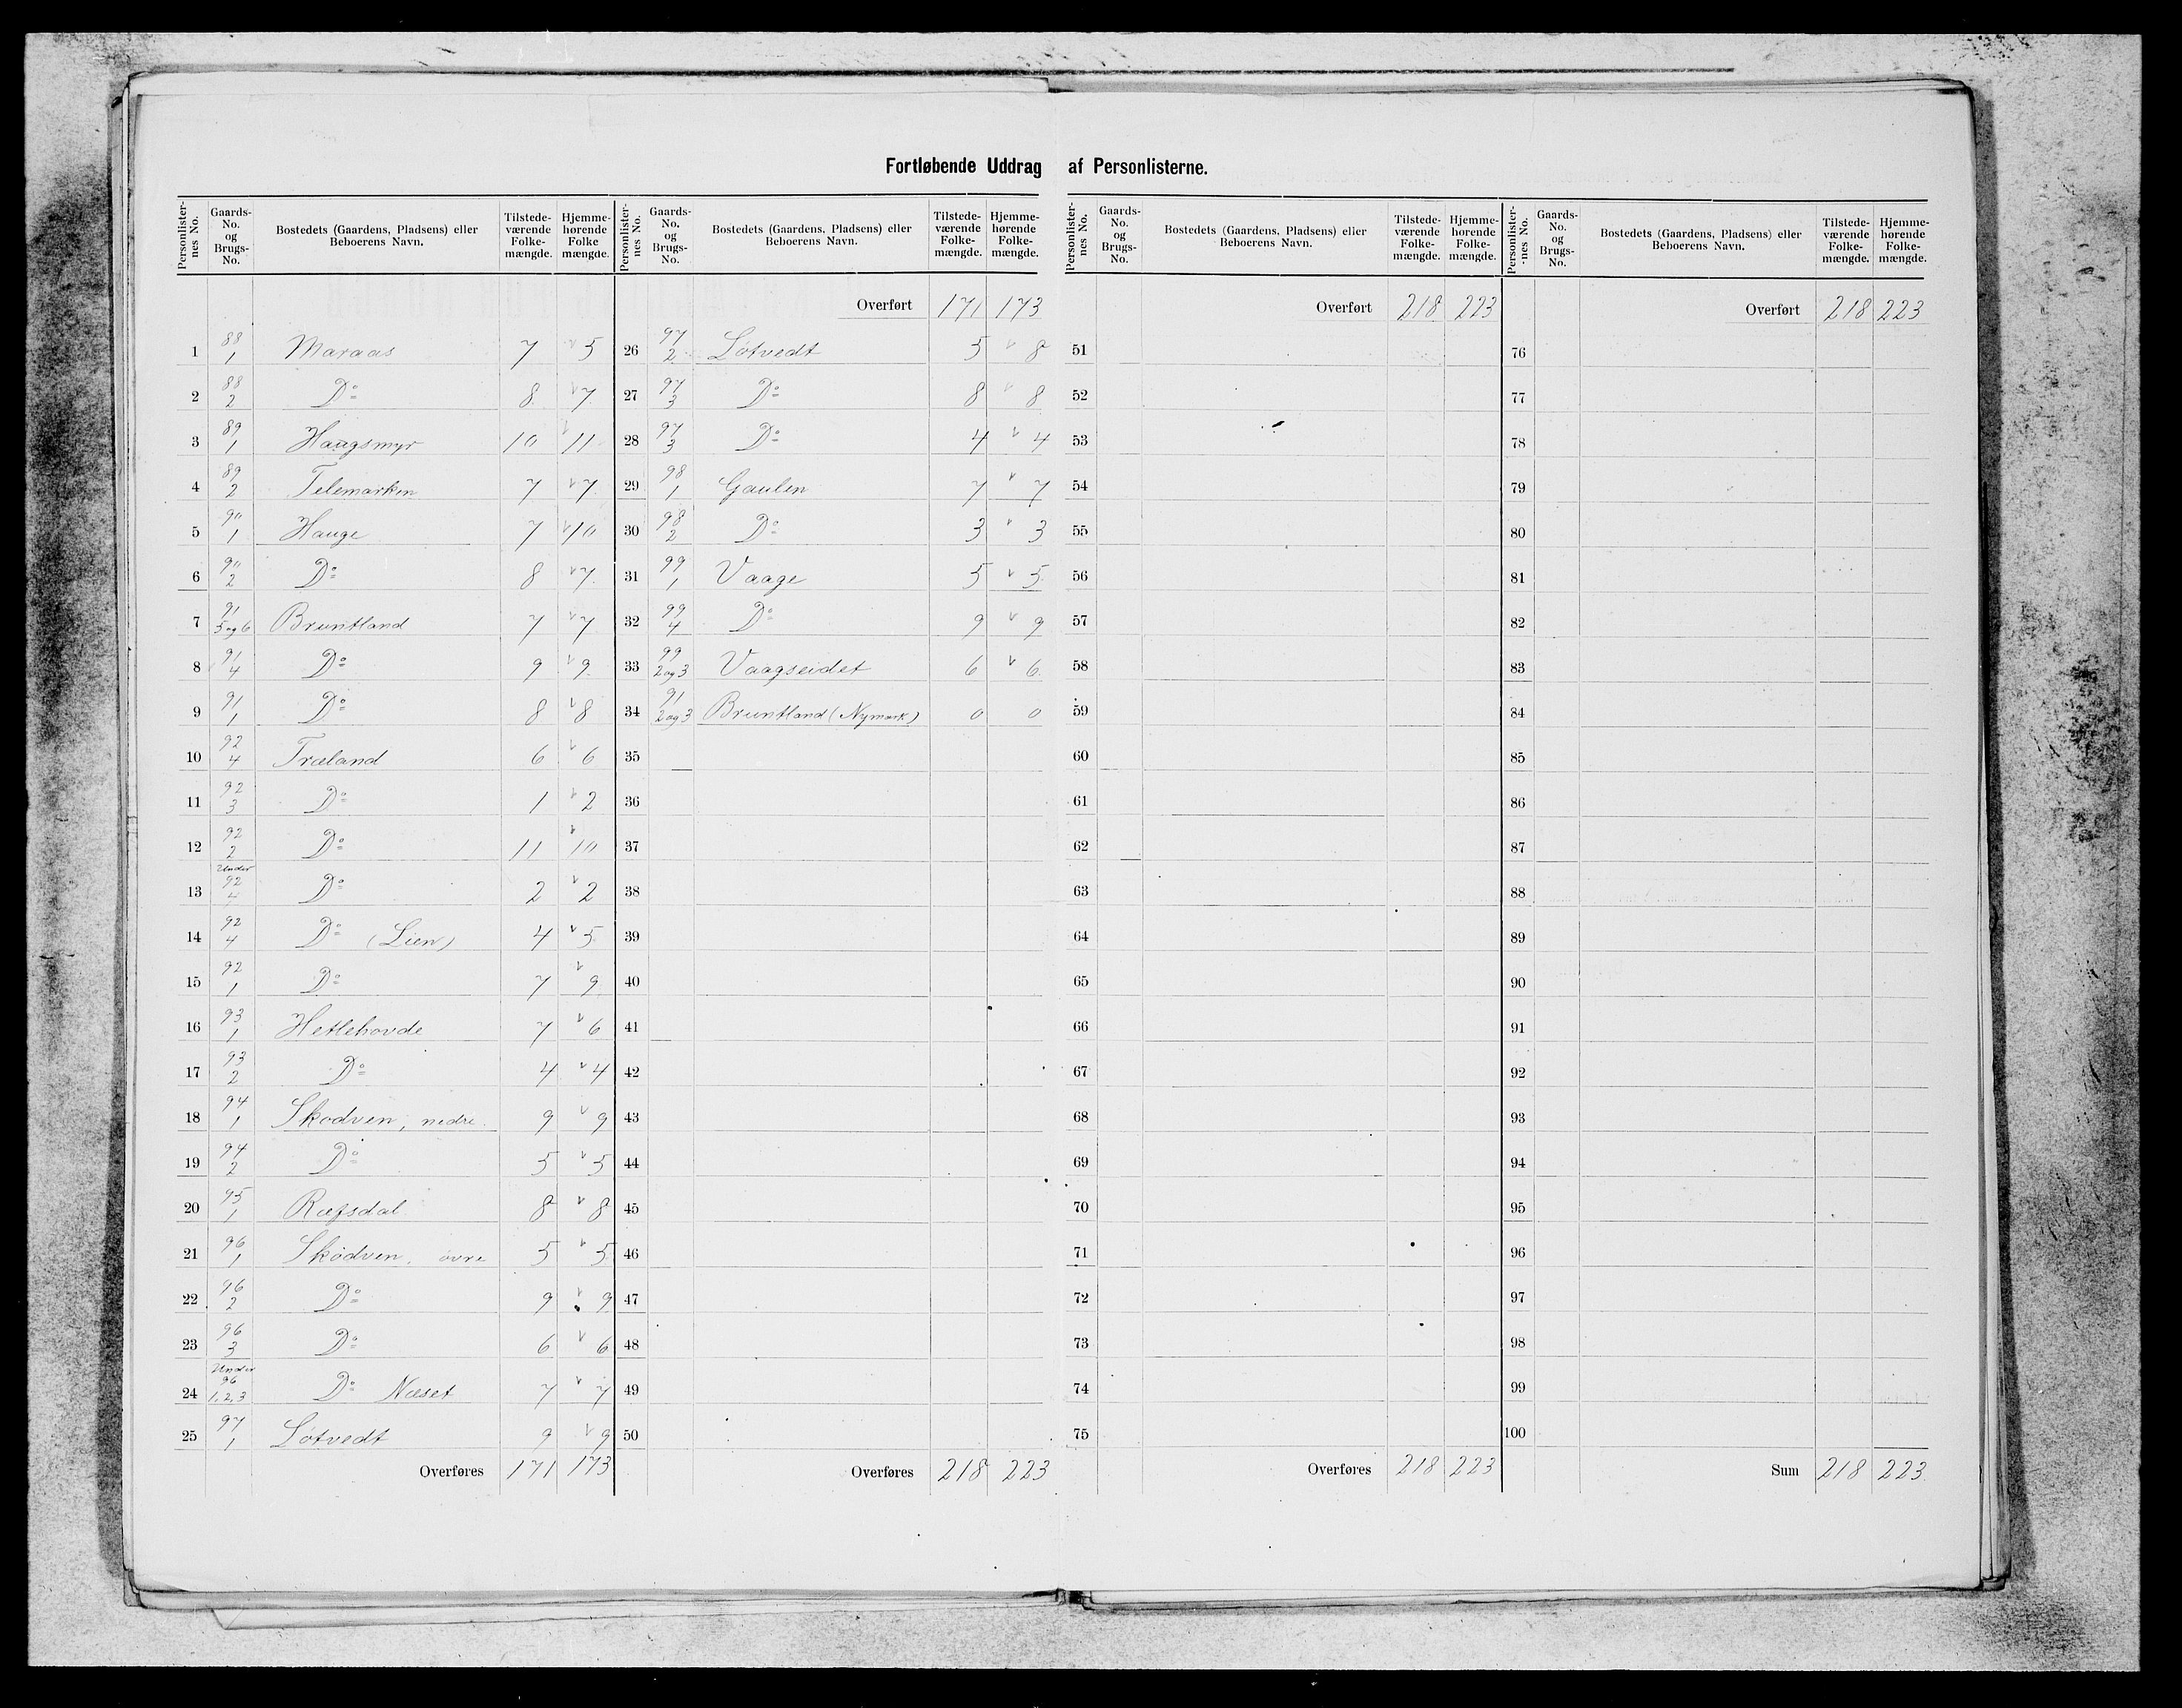 Fortløbende Uddrag af Personlisterne.
Personlister-nes No. | Gaards-No. og Brugs-No. | Bostedets (Gaardens, Pladsens) eller Beboerens Navn. | Tilstede-værende Folke-mængde. | Hjemme-hørende Folke mængde.
1 | 88 1 | Maraas | 7 | 5
2 | 88 2 | Do | 8 | 7
3 | 89 1 | Haugsmyr | 10 | 11
4 | 89 2 | Telemarken | 7 | 7
5 | 90 1 | Hauge | 7 | 10
6 | 90 2 | Do | 8 | 7
7 | 91 5 og 6 | Bruntland | 7 | 7
8 | 91 4 | Do | 9 | 9
9 | 91 1 | Do | 8 | 8
10 | 92 4 | Træland | 6 | 6
11 | 92 3 | Do | 1 | 2
12 | 92 2 | Do | 11 | 10
13 | Under 92 4 | Do | 2 | 2
14 | 92 4 | Do (Lien) | 4 | 5
15 | 92 1 | Do | 7 | 9
16 | 93 1 | Hetlehovde | 7 | 6
17 | 93 2 | Do | 4 | 4
18 | 94 1 | Skodven, nedre | 9 | 9
19 | 94 2 | Do | 5 | 5
20 | 95 1 | Ræfsdal | 8 | 8
21 | 96 1 | Skodven, øvre | 5 | 5
22 | 96 2 | Do | 9 | 9
23 | 96 3 | Do | 6 | 6
24 | Under 96 1, 2, 3 | Do Næset | 7 | 7
25 | 97 1 | Løtvedt | 9 | 9
Overføres | 171 | 173
Personlister-nes No. | Gaards-No. og Brugs-No. | Bostedets (Gaardens, Pladsens) eller Beboerens Navn. | Tilstede-værende Folke-mængde. | Hjemme-hørende Folke-mængde.
Overført | 171 | 173
26 | 97 2 | Løtvedt | 5 | 8
27 | 97 3 | Do | 8 | 8
28 | 97 3 | Do | 4 | 4
29 | 98 1 | Gaulen | 7 | 7
30 | 98 2 | Do | 3 | 3
31 | 99 1 | Vaage | 5 | 5
32 | 99 4 | Do | 9 | 9
33 | 99 2 og 3 | Vaagseidet | 6 | 6
34 | 91 2 og 3 | Bruntland (Nymark) | 0 | 0
35
36
37
38
39
40
41
42
43
44
45
46
47
48
49
50
Overføres | 218 | 223
Personlister-nes No. | Gaards-No. og Brugs-No. | Bostedets (Gaardens, Pladsens) eller Beboerens Navn. | Tilstede-værende Folke-mængde. | Hjemme-hørende Folke-mængde.
Overført | 218 | 223
51
52
53
54
55
56
57
58
59
60
61
62
63
64
65
66
67
68
69
70
71
72
73
74
75
Overføres | 218 | 223
Personlister-nes No. | Gaards-No. og Brugs-No. | Bostedets (Gaardens, Pladsens) eller Beboerens Navn. | Tilstede-værende Folke-mængde. | Hjemme-hørende Folke-mængde.
Overført | 218 | 223
76
77
78
79
80
81
82
83
84
85
86
87
88
89
90
91
92
93
94
95
96
97
98
99
100
Sum | 218 | 223